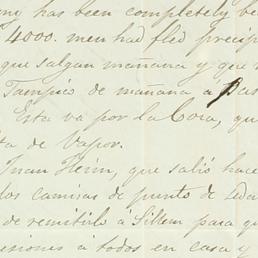 my has been completely be
4000. men had fled precip
que salgan mañana y que
Tampico de mañana a pas
Esta va por la Cora, qu
ta de Vapor.
Juan Heim, que salió hace
los camisas de punto de seda
de remitirlo á Sillem para qu
esiones á todos en casa y